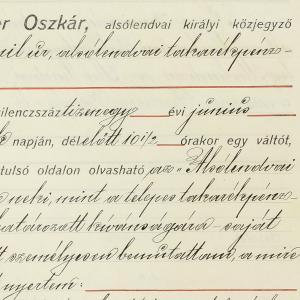 er Oszkár, alsólendvai királyi közjegyző
úr, alsólendvai takarékpénz-
ilencszáz tizenegy évi június
napján, dél előtt 10 1/2 órakor egy váltót,
tulsó oldalon olvasható az "Alsólendvai
neki, mint a telepes takarékpénz-
határozott kívánságára - saját
személyesen bemutattam, a mire
nyertem: